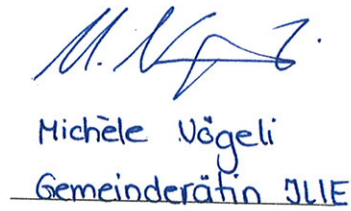 Michèle Vögeli
Gemeinderätin JLIE